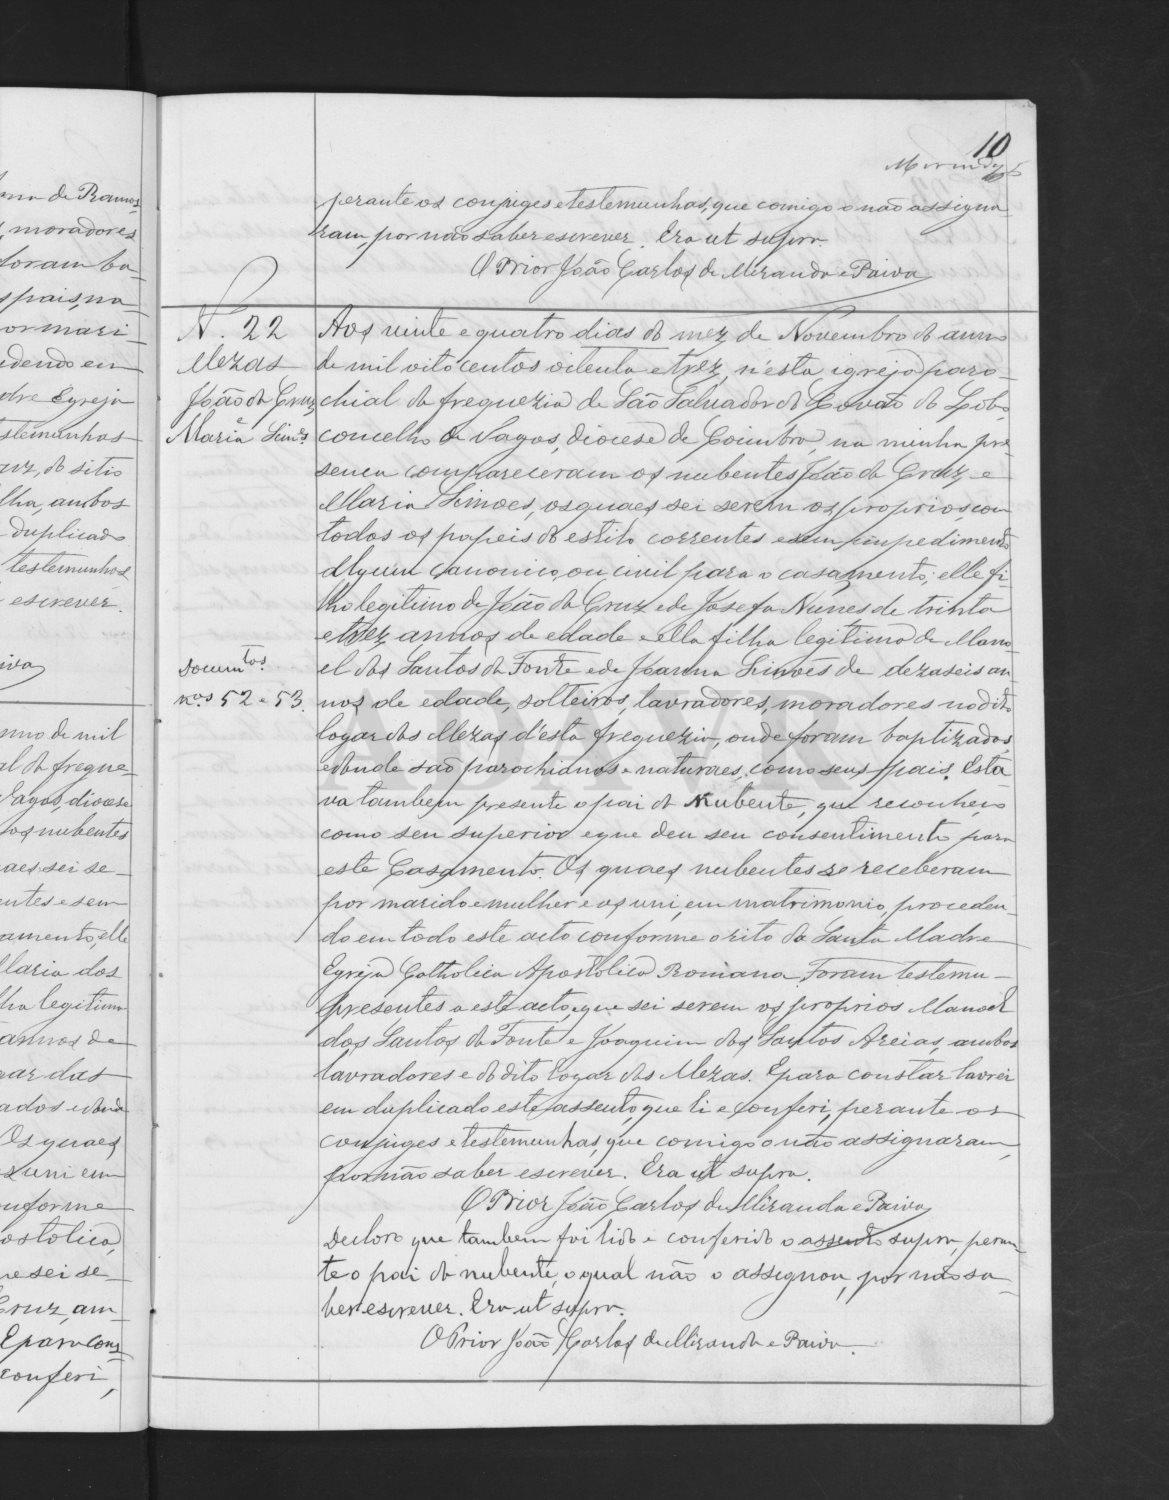 10
Miranda
perante os conjuges e testemunhas, que comigo o não assigna
ram, por não saber escrever. Era ut supra.
O Prior João Carlos de Miranda e Paiva
N. 22
Mezas
João da Cruz
e
Maria Simões
Documtos
nos 52 e 53.
Aos vinte e quatro dias do mez de Novembro do anno
de mil oitocentos oitenta e trez, n'esta igreja paro-
chial da freguezia de São Salvador do Covão do Lobo
concelho de Vagos, diocese de Coimbra, na minha pre-
sença compareceram os nubentes João da Cruz e
Maria Simoes, os quaes sei serem os proprios, com
todos os papeis do estilo correntes e sem impedimento
algum canonico, ou civil para o casamento; elle fi-
lho legitimo de João da Cruz e de Josefa Nunes de trinta
e trez annos de edade e ella filha legitima de Mano-
el dos Santos da Fonte e de Joanna Simões de dezaseis an-
nos de edade, solteiros, lavradores, moradores no dito
logar das Mezas d'esta freguezia, onde foram baptizados,
e donde são parochianos e naturaes, como seus pais. Esta
va tambem presente o pai da Nubente, que reconheço
como seu superior e que deu seu consentimento para
este Casamento. Os quaes nubentes se receberam
por marido e mulher e os uni em matrimonio, proceden-
do em todo este acto conforme o rito da Santa Madre
Egreja Catholica Apostolica Romana. Foram testemu-
presentes a este acto, que sei serem os proprios Manoel
dos Santos da Fonte e Joaquim dos Santos Areias, ambos
lavradores e do dito logar das Mezas. E para constar lavrei
em duplicado este assento, que li e conferi, perante os
conjuges e testemunhas, que comigo o não assignaram,
por não saber escrever. Era ut supra.
O Prior João Carlos de Miranda e Paiva
Declaro que tambem foi lido e conferido o assento supra, peran-
te o pai da nubente, o qual não o assignou, por não sa-
ber escrever. Era ut supra.
O Prior João Carlos de Miranda e Paiva.